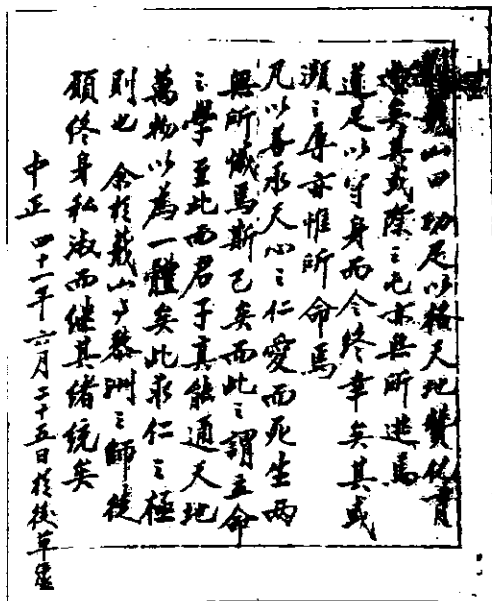 蕺山曰功足以格天地贊化育
尚矣其或際之屯亦無所逃焉
道足以守身而令終幸矣其或
瀕之辱亦惟所命焉
凡以善承天心之仁愛而死生兩
無所憾焉斯已矣而此之謂立命
之學至此而君子真能通天地
萬物以為一體矣此求仁之極
則也 余於蕺山與黎洲之師徒
願終身私淑而繼其緒統矣
中正 四十一年六月二十五日於後草廬